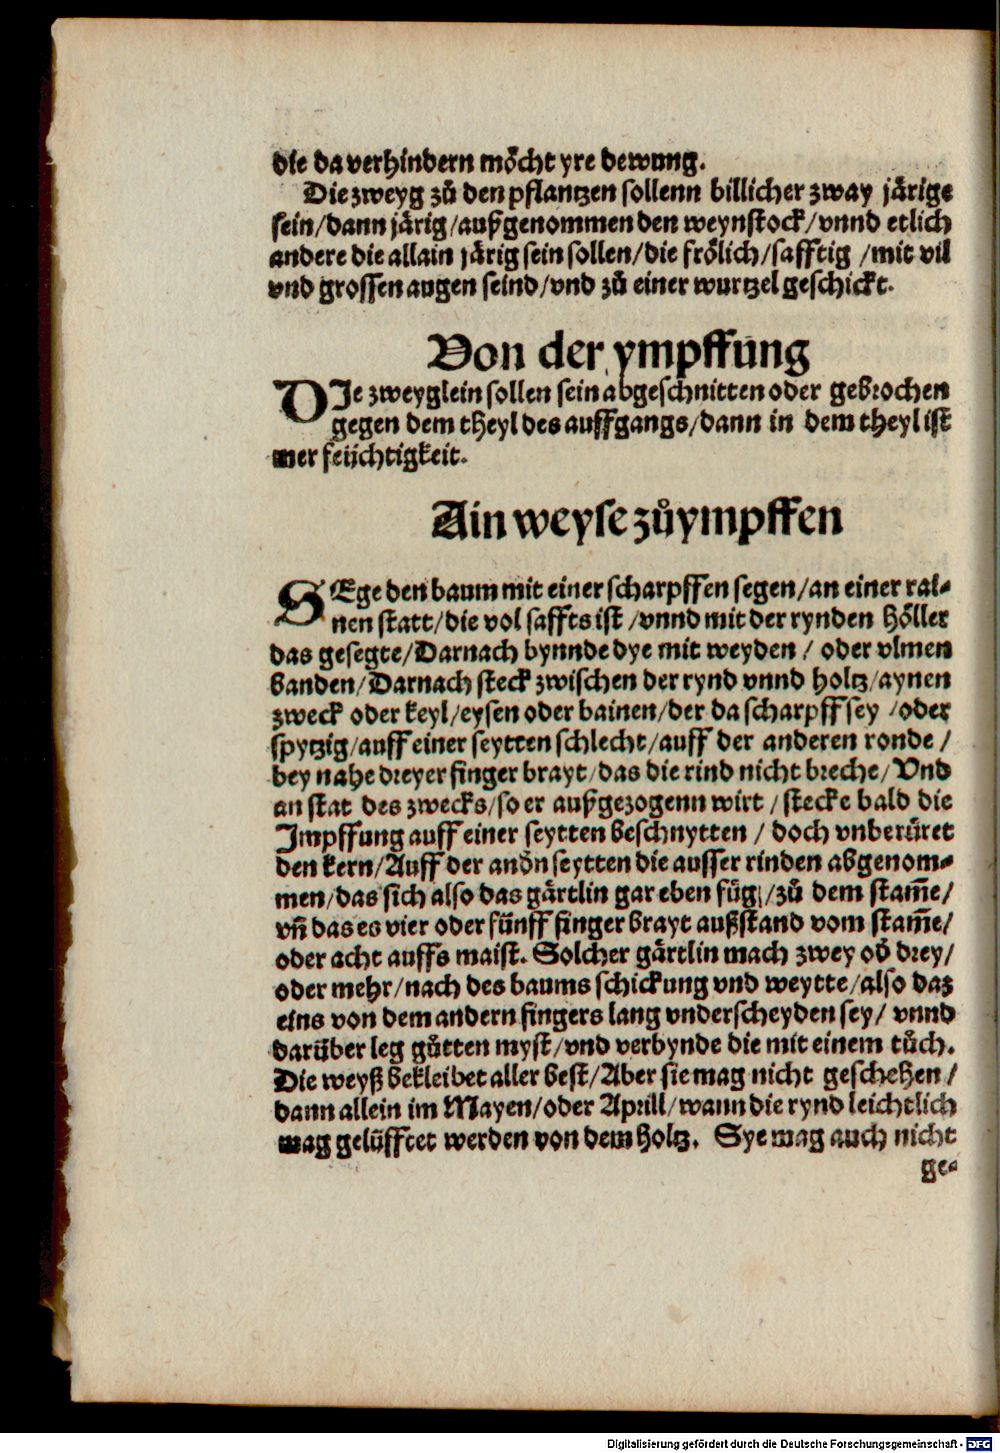 die da verhindern moͤcht yre dewung.
Die zweyg zuͦ den pflantzen sollenn billicher zway jaͤrige
sein/dann jaͤrig/außgenommen den weynstock/vnnd etlich
andere die allain jaͤrig sein sollen/die froͤlich/safftig /mit vil
vnd grossen augen seind/vnd zuͦ einer wurtzel geschickt.
Von der ympffung
DIe zweyglein sollen sein abgeschnitten oder gebrochen
gegen dem theyl des auffgangs/dann in dem theyl ist
mer feüchtigkeit.
Ain weyse zuͦympffen
SEge den baum mit einer scharpffen segen/an einer rai⸗
nen statt/die vol saffts ist /vnnd mit der rynden hoͤller
das gesegte/Darnach bynnde dye mit weyden / oder vlmen
banden/Darnach steck zwischen der rynd vnnd holtz/aynen
zweck oder keyl/eysen oder bainen/der da scharpff sey /oder
spytzig/auff einer seytten schlecht/auff der anderen ronde /
bey nahe dreyer finger brayt/das die rind nicht breche/Vnd
an stat des zwecks/so er außgezogenn wirt /stecke bald die
Impffung auff einer seytten beschnytten / doch vnberuͤret
den kern/Auff der anð̄n seytten die ausser rinden abgenom⸗
men/das sich also das gaͤrtlin gar eben fuͤg/zuͦ dem stam̄e/
vn̄ das es vier oder fünff finger brayt außstand vom stam̄e/
oder acht auffs maist. Solcher gaͤrtlin mach zwey oð drey/
oder mehr/nach des baums schickung vnd weytte/also daz
eins von dem andern fingers lang vnderscheyden sey/ vnnd
darüber leg guͦtten myst/vnd verbynde die mit einem tuͦch.
Die weyß bekleibet aller best/Aber sie mag nicht geschehen/
dann allein im Mayen/oder Aprill/wann die rynd leichtlich
mag gelüfftet werden von dem holtz. Sye mag auch nicht
ge⸗
Digitalisierung gefördert durch die Deutsche Forschungsgemeinschaft - DFG